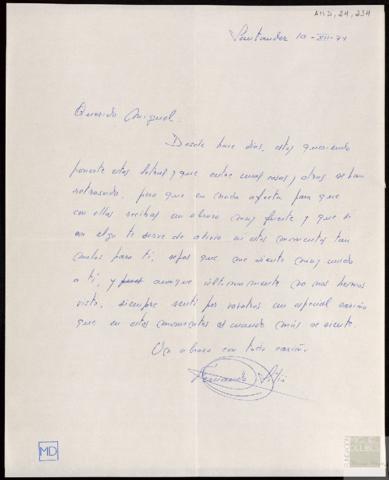 AMD, 24, 234
Santander 10-XII-74
Querido Miguel.
Desde hace días, estoy queriendo
ponerte estas letras y que entre unas cosas y otras se han
retrasado, pero que en nada afecta para que
con ellas recibas un abrazo muy fuerte y que si
en algo te sirve de alivio en estos momentos tan
malos para ti, sepas que me siento muy unido
a ti, y aunque últimamente no nos hemos
visto, siempre sentí por vosotros un especial cariño
que en estos momentos es cuando más se siente.
Un abrazo con todo cariño.
Fernando
MD